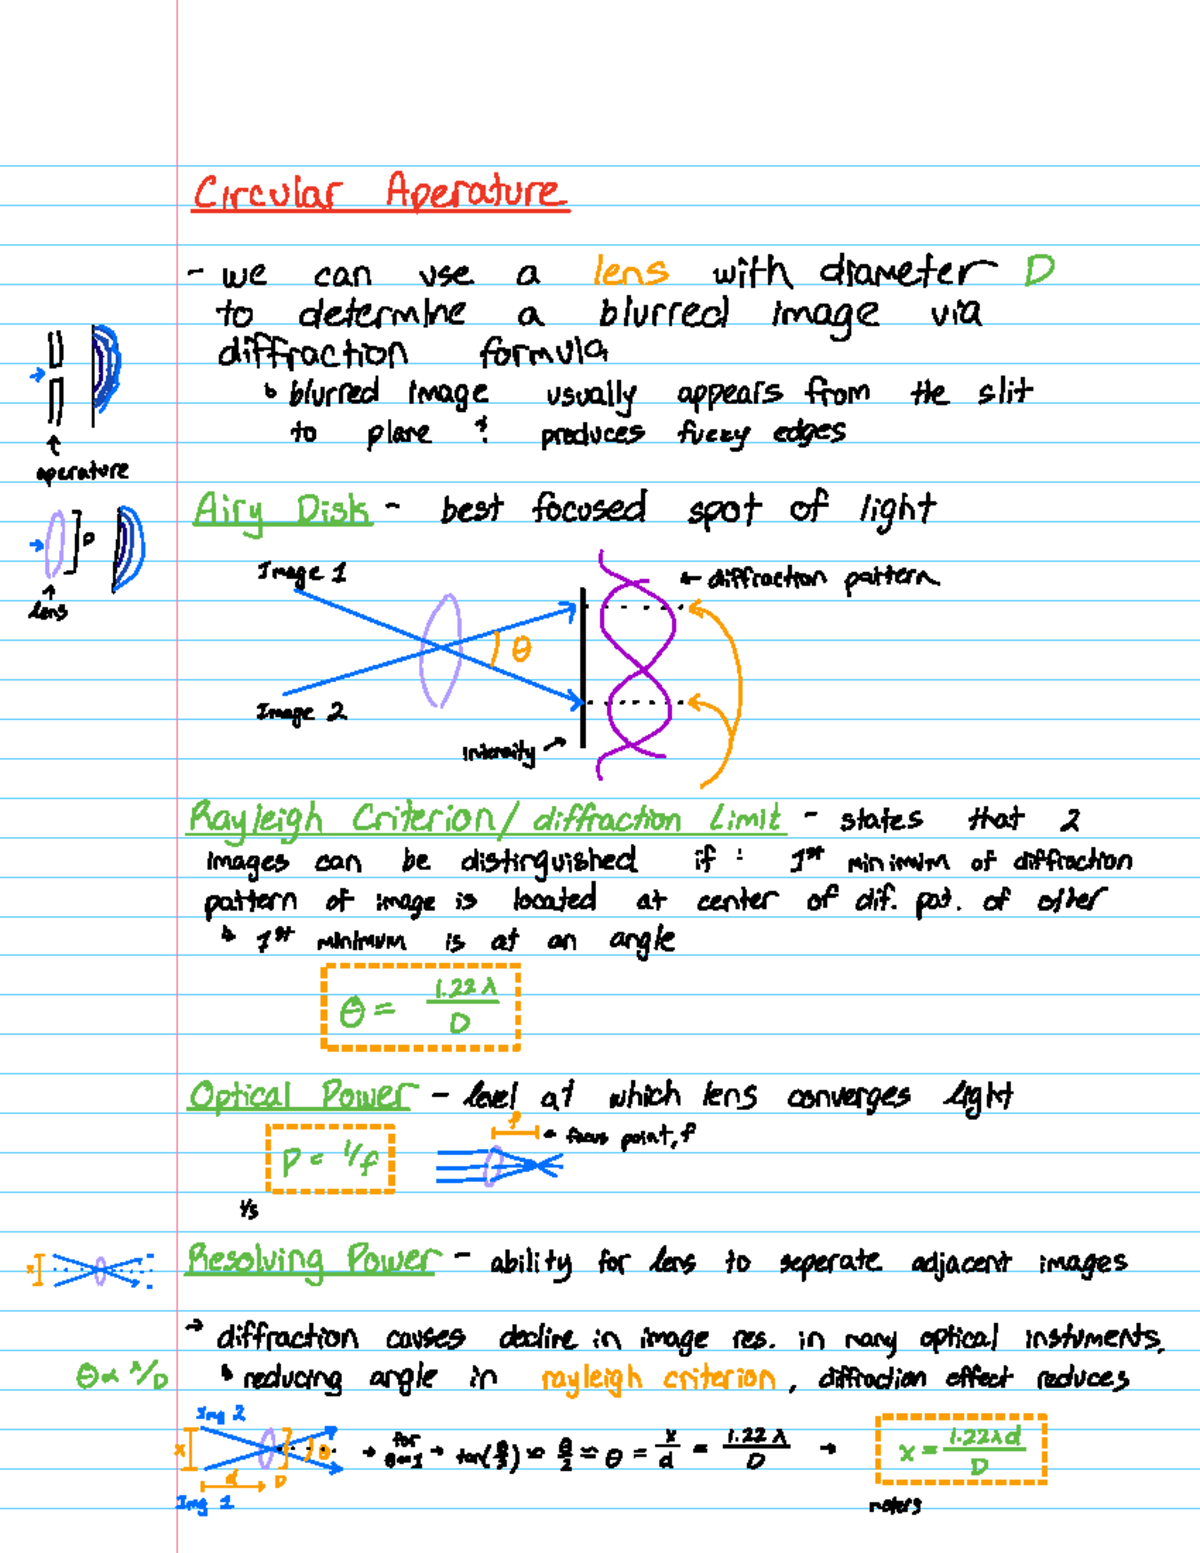 Circular Aperature
- we can use a lens with diameter D
to determine a blurred image via
diffraction formula
↳ blurred image usually appears from the slit
to plane & produces fuzzy edges
aperature
Airy Disk - best focused spot of light
D
lens
Image 1
← diffraction pattern
θ
Image 2
intensity →
Rayleigh Criterion/diffraction Limit - states that 2
images can be distinguished if : 1st minimum of diffraction
pattern of image is located at center of dif. pat. of other
↳ 1st minimum is at an angle
θ = 1.22λ/D
Optical Power - level at which lens converges light
f
← focus point, f
P = 1/f
1/s
x
Resolving Power - ability for lens to seperate adjacent images
→ diffraction causes decline in image res. in many optical instuments,
θ ∝ λ/D
↳ reducing angle in rayleigh criterion, diffraction effect reduces
Img 2
x
θ
d
D
Img 1
→ for θ<<1 → tan(θ/2) ≈ θ/2 ≈ θ = x/d = 1.22λ/D → x = 1.22λd/D
meters